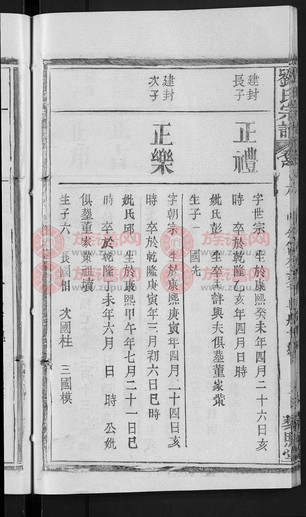 劉氏宗譜
建封
長子
正禮
字世宗 生於康熙癸未年四月二十六日亥
時 卒於乾隆乙亥年四月 日 時
妣氏彭 生卒未詳與夫俱塟董家
生子 國先
建封
次子
正樂
字朝宗 生於康熙庚寅年四月二十四日亥
時 卒於乾隆庚寅年三月初六日巳時
妣氏邱 生於康熙甲午年七月二十一日巳
時 卒於乾隆丁未年六月 日 時 公妣
俱塟董家 祖墳
生子六 長國相 次國柱 三國模